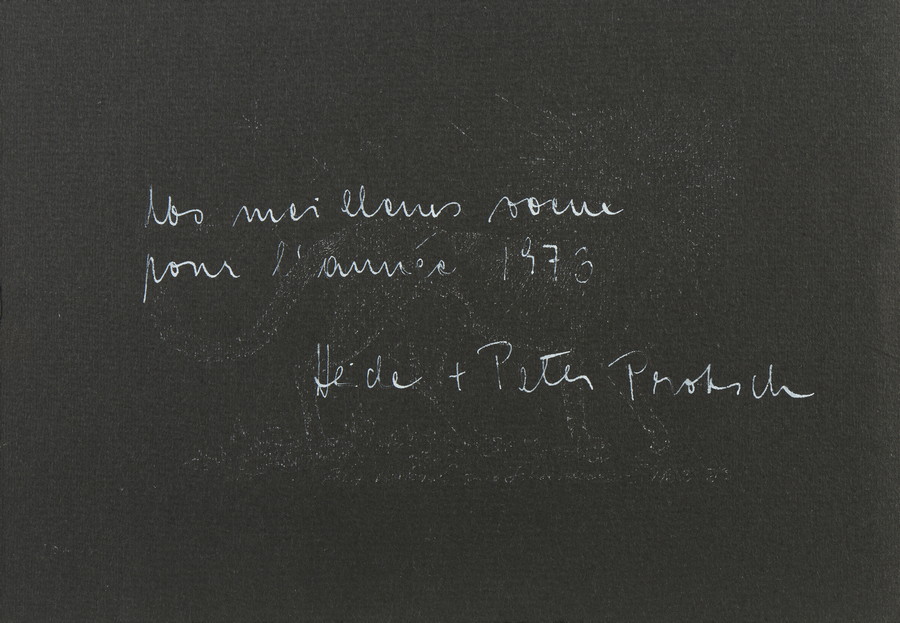 Nos meilleurs voeux
pour l'année 1976
Heide + Peter